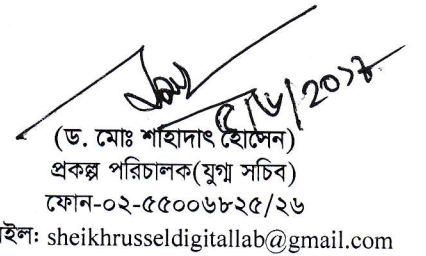 ৫/৬/২০১৮
(ড. মোঃ শাহাদাৎ হোসেন)
প্রকল্প পরিচালক(যুগ্ম সচিব)
ফোন-০২-৫৫০০৬৮২৫/২৬
ইল: sheikhrusseldigitallab@gmail.com